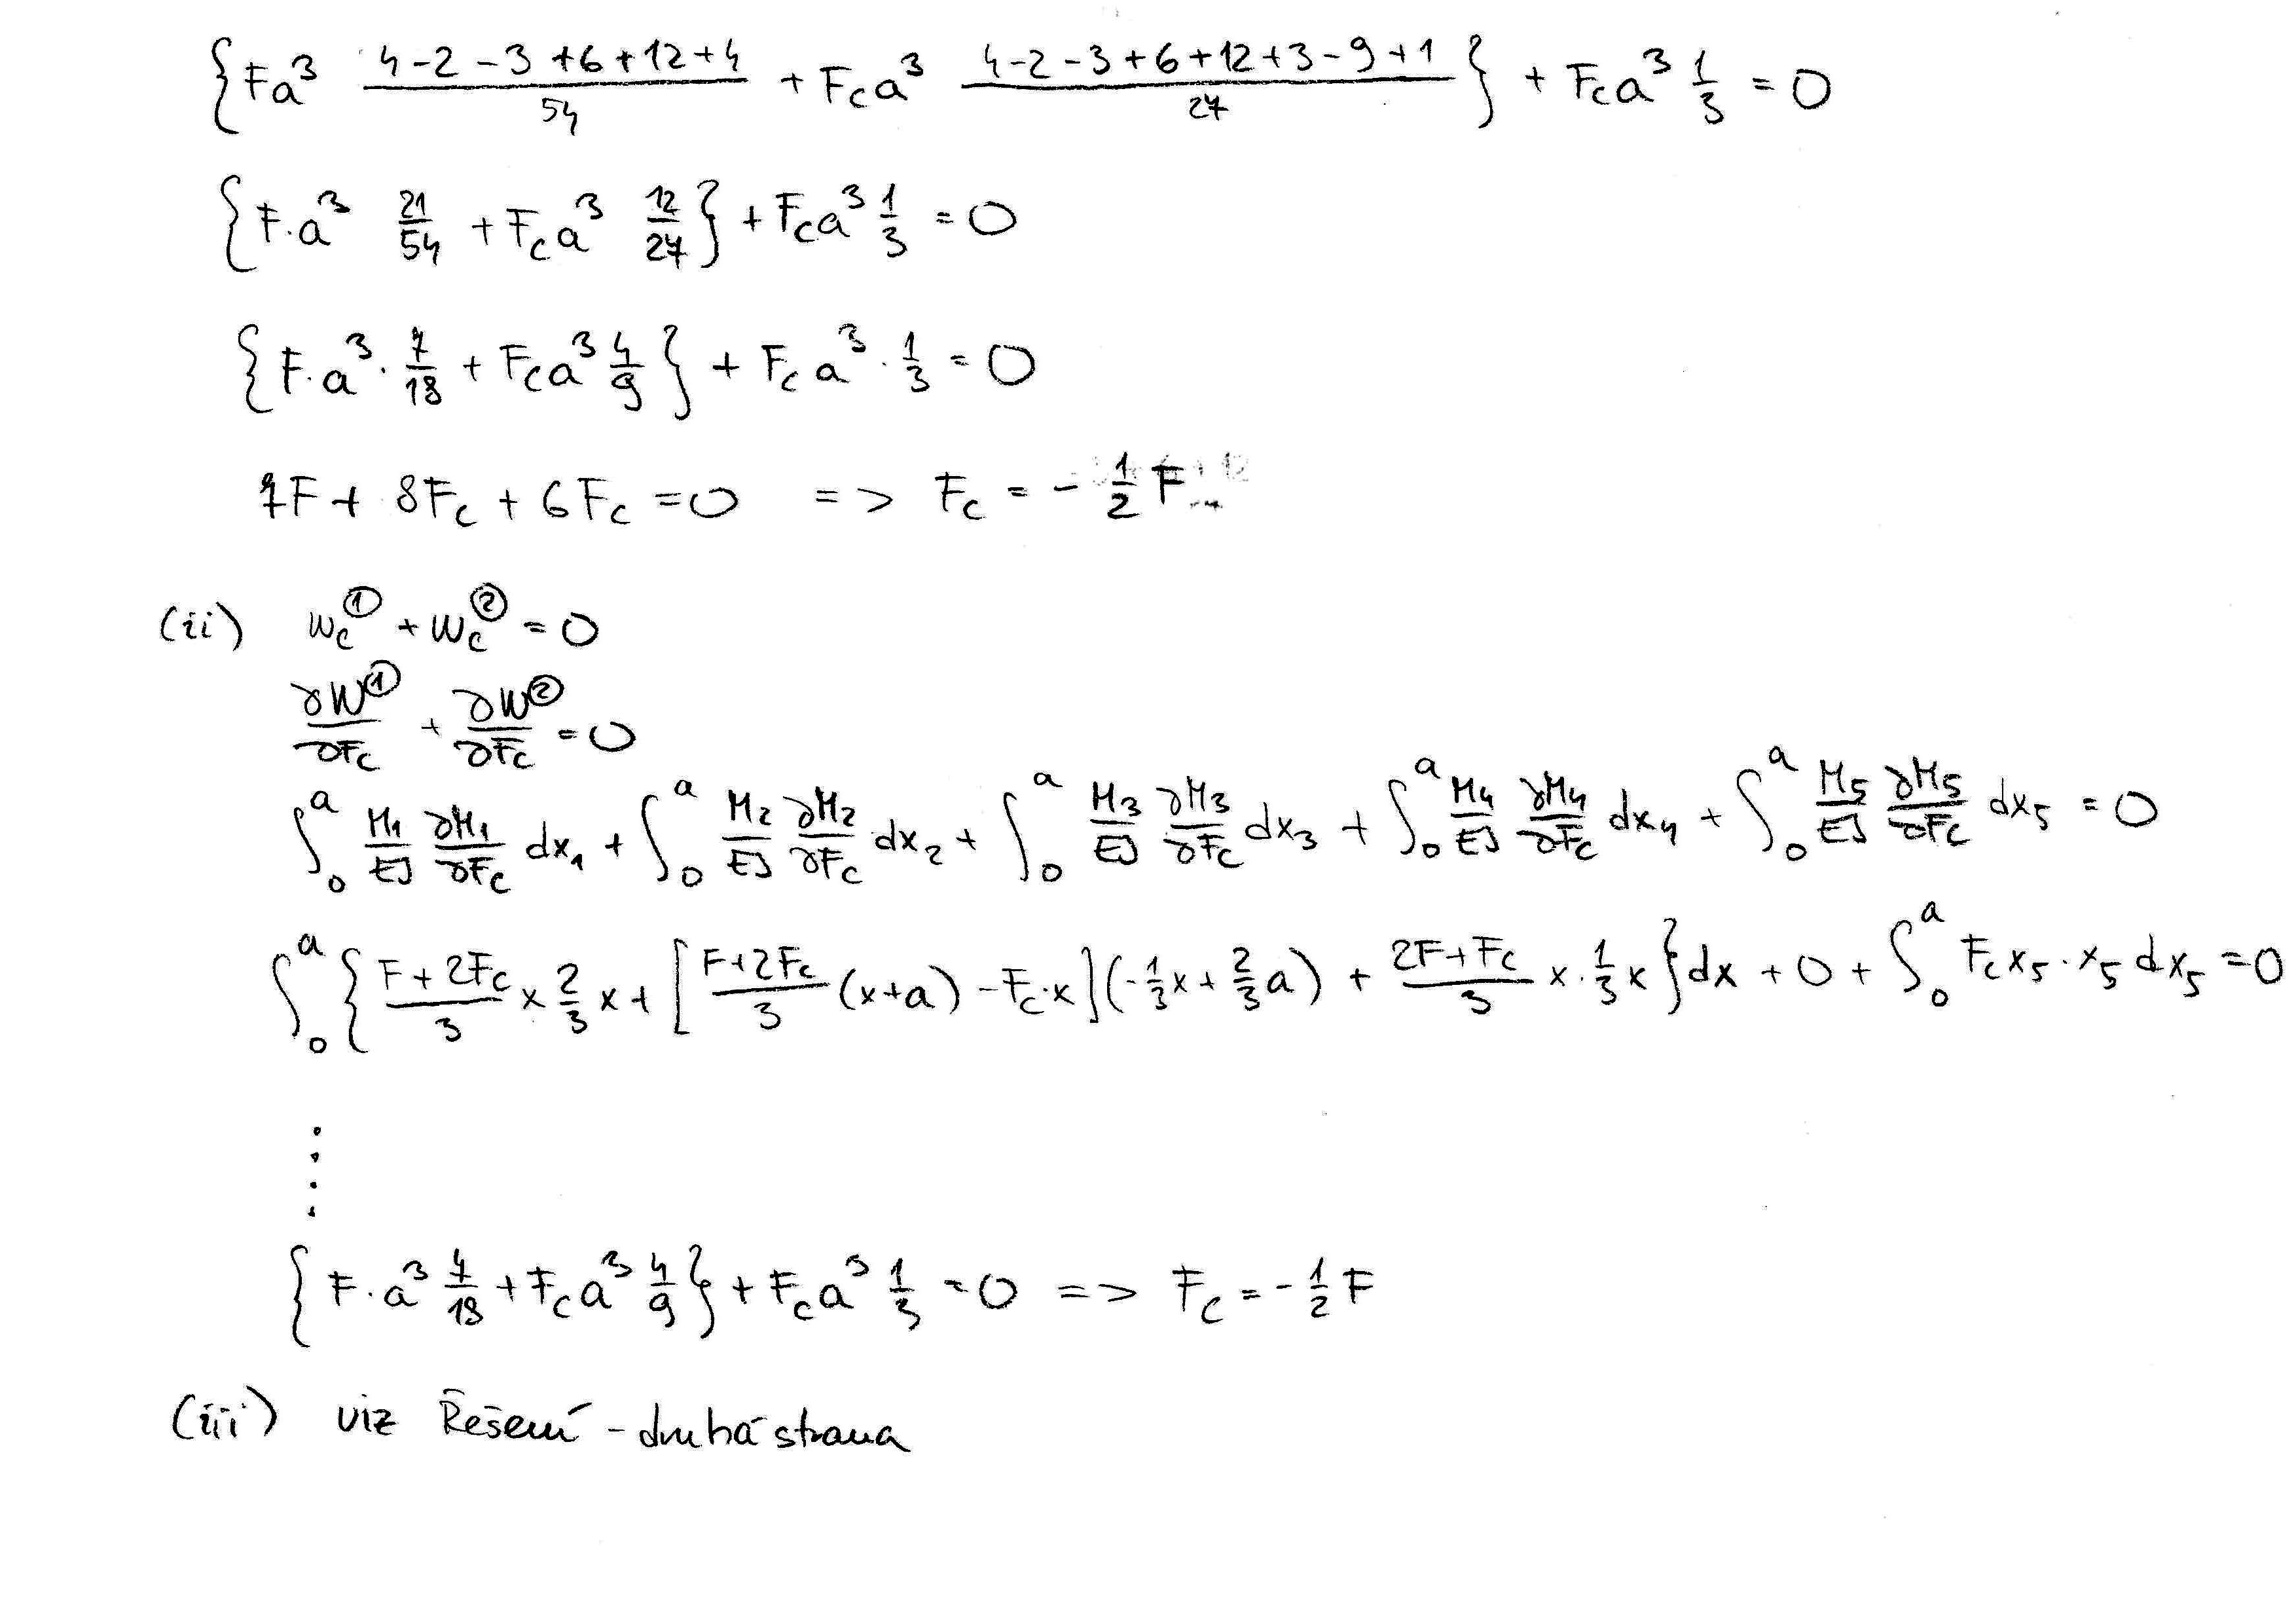 {Fa³ (4-2-3+6+12+4)/54 + F_c a³ (4-2-3+6+12+3-9+1)/27} + F_c a³ 1/3 = 0
{F·a³ 21/54 + F_c a³ 12/27} + F_c a³ 1/3 = 0
{F·a³· 7/18 + F_c a³ 4/9} + F_c a³ · 1/3 = 0
7F + 8F_c + 6F_c = 0 => F_c = - 1/2 F
(ii) w_c^① + w_c^② = 0
∂W^①/∂F_c + ∂W^②/∂F_c = 0
∫₀^a M₁/EJ ∂M₁/∂F_c dx₁ + ∫₀^a M₂/EJ ∂M₂/∂F_c dx₂ + ∫₀^a M₃/EJ ∂M₃/∂F_c dx₃ + ∫₀^a M₄/EJ ∂M₄/∂F_c dx₄ + ∫₀^a M₅/EJ ∂M₅/∂F_c dx₅ = 0
∫₀^a {(F+2F_c)/3 x · 2/3 x + [(F+2F_c)/3 (x+a) - F_c·x](-1/3 x + 2/3 a) + (2F+F_c)/3 x · 1/3 x} dx + 0 + ∫₀^a F_c x₅ · x₅ dx₅ = 0
⋮
{F·a³ 7/18 + F_c a³ 4/9} + F_c a³ 1/3 = 0 => F_c = - 1/2 F
(iii) viz Řešení - druhá strana